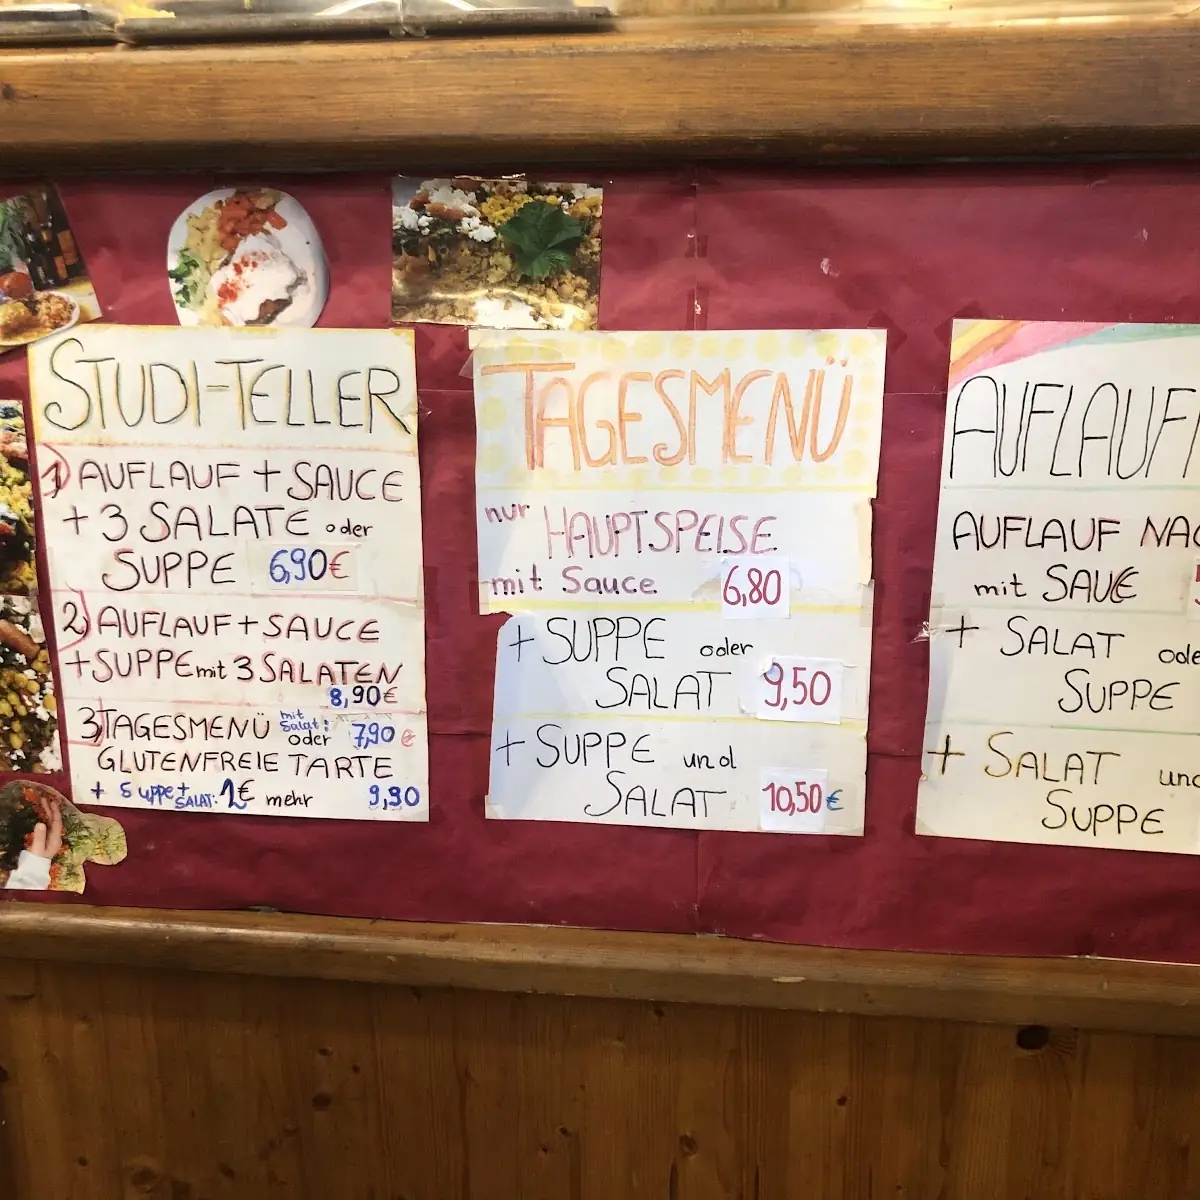 STUDI-TELLER
1) AUFLAUF + SAUCE
+ 3 SALATE oder
SUPPE 6,90€
2) AUFLAUF + SAUCE
+ SUPPE mit 3 SALATEN
8,90€
3) TAGESMENÜ mit Salat: 7,90 €
oder
GLUTENFREIE TARTE
+ Suppe + SALAT: 2€ mehr 9,90
TAGESMENÜ
nur HAUPTSPEISE
mit Sauce 6,80
+ SUPPE oder
SALAT 9,50
+ SUPPE und
SALAT 10,50€
AUFLAUF
AUFLAUF NAC
mit SAUCE
+ SALAT ode
SUPPE
+ SALAT und
SUPPE